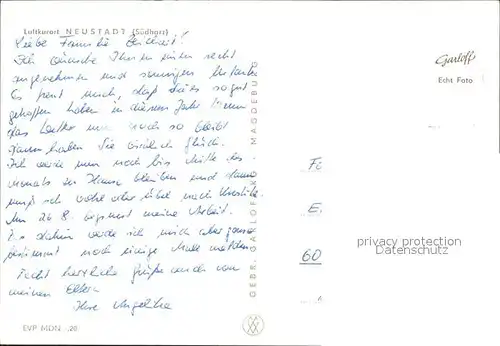 Luftkurort NEUSTADT (Südharz)
Liebe Familie
Ich wünsche Ihnen einen recht
angenehmen und sonnigen Urlaub.
Es freut mich, daß dies so gut
geholfen haben in diesem Jahr. Wenn
das Wetter nun noch so bleibt
dann haben Sie wirklich Glück.
Ich werde nun noch bis Mitte des
Monats zu Hause bleiben und dann
muß ich wohl oder übel nach
Am 26. 8. beginnt meine Arbeit.
Bis dahin werde ich mich aber ganz
bestimmt noch einige Male melden.
Recht herzliche Grüße auch von
meinen Eltern
Ihre Angelika
EVP MDN -,20
GEBR. GARLOFF KG, MAGDEBURG
Garloff
Echt Foto
60
privacy protection
Datenschutz